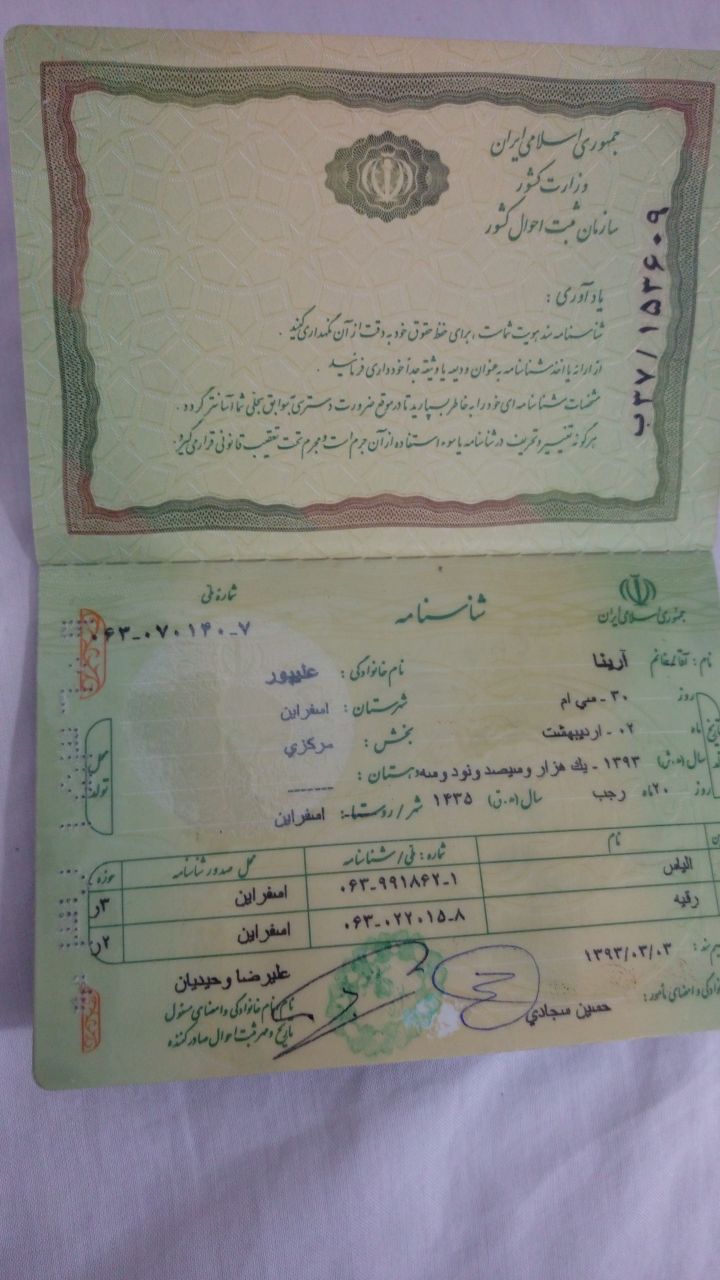 جمهوری اسلامی ایران
وزارت کشور
سازمان ثبت احوال کشور
ب۳۷/۱۵۳۶۰۹
یادآوری :
شناسنامه سند هویت شماست ، برای حفظ حقوق خود به دقت از آن نگهداری کنید .
از ارائه یا اخذ شناسنامه به عنوان ودیعه یا وثیقه جداً خودداری فرمائید .
مشخصات شناسنامه ای خود را به خاطر بسپارید تا در موقع ضرورت دسترسی به سوابق سجلی شما آسانتر گردد .
هر گونه تغییر و تحریف در شناسنامه یا سوء استفاده از آن جرم است و مجرم تحت تعقیب قانونی قرار می گیرد .
جمهوری اسلامی ایران
شناسنامه
شماره ملی
۰۶۳-۰۷۰۱۴۰-۷
نام : آقا/خانم آرینا
نام خانوادگی : علیپور
روز ۳۰ - سي ام
شهرستان : اسفراین
ماه ۰۲ - اردیبهشت
بخش : مرکزي
سال (ه.ش) ۱۳۹۳ - یك هزار و سیصد و نود و سه
دهستان : ------
روز ۲۰ ماه رجب سال (ه.ق) ۱۴۳۵
شهر / روستا : اسفراین
محل تولد
نام شماره : ملی / شناسنامه محل صدور شناسنامه حوزه
الیاس ۰۶۳-۹۹۱۸۶۲-۱ اسفراین ۳ر
رقیه ۰۶۳-۰۲۲۰۱۵-۸ اسفراین ۲ر
۱۳۹۳/۰۳/۰۳
امضای مأمور : حسین سجادي
علیرضا وحیدیان
نام و نام خانوادگی و امضای مسئول
تاریخ و مهر ثبت احوال صادر کننده